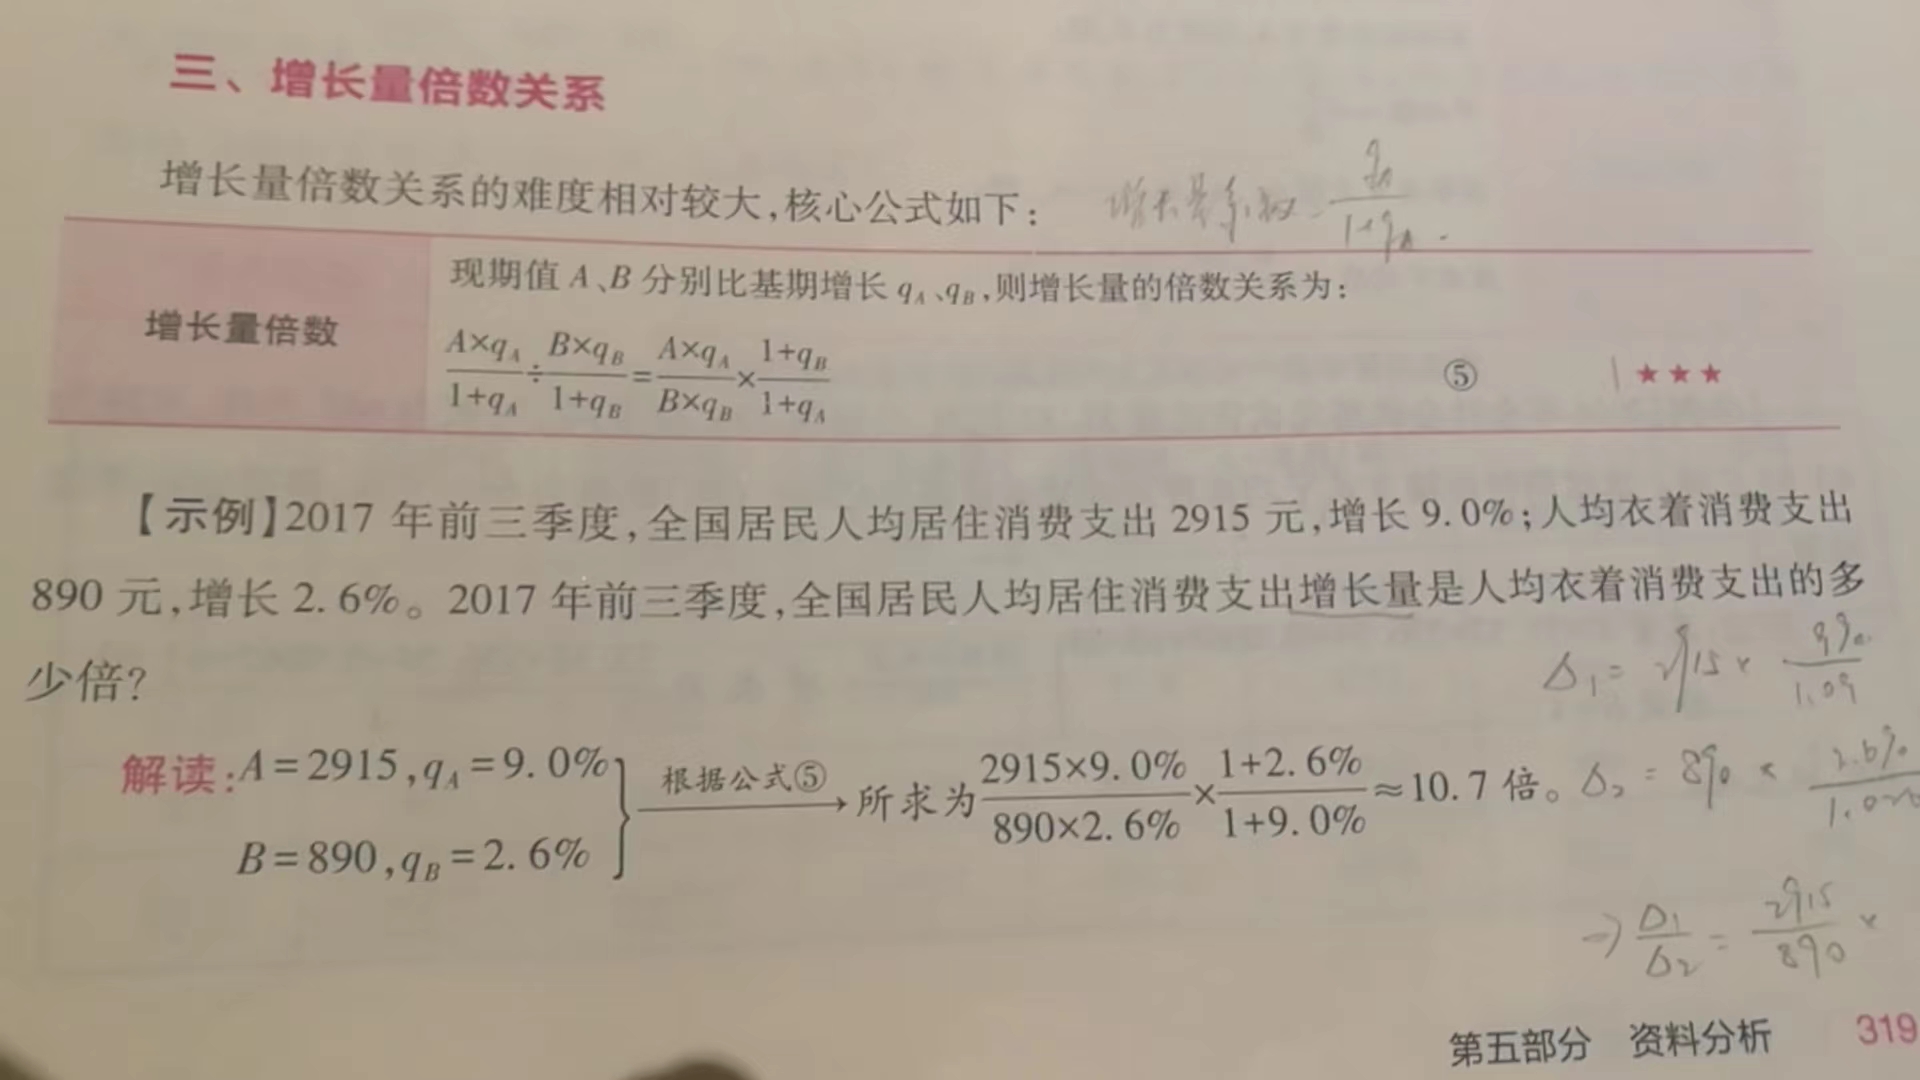 三、增长量倍数关系
增长量倍数关系的难度相对较大,核心公式如下:
增长量系数 = q_A/(1+q_A).
增长量倍数
现期值 A、B 分别比基期增长 q_A、q_B,则增长量的倍数关系为:
(A×q_A)/(1+q_A)÷(B×q_B)/(1+q_B)=(A×q_A)/(B×q_B)×(1+q_B)/(1+q_A) ⑤ ★★★
【示例】2017 年前三季度,全国居民人均居住消费支出 2915 元,增长 9.0%;人均衣着消费支出
890 元,增长 2.6%。2017 年前三季度,全国居民人均居住消费支出增长量是人均衣着消费支出的多
少倍?
Δ₁= 2915 × 9%/1.09
解读:A=2915,q_A=9.0%
B=890,q_B=2.6%
根据公式⑤
所求为(2915×9.0%)/(890×2.6%)×(1+2.6%)/(1+9.0%)≈10.7 倍。
Δ₂ = 890 × 2.6%/
⇒ Δ₁/Δ₂ = 2915/890 ×
第五部分 资料分析 319